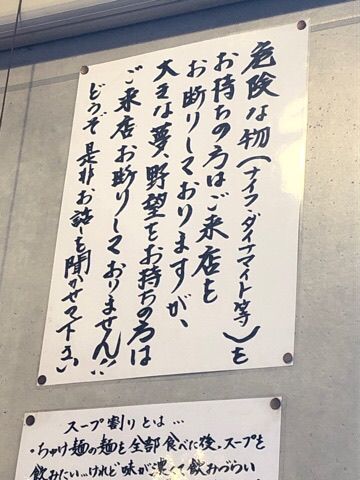 危険な物(ナイフ・ダイナマイト等)を
お持ちの方はご来店を
お断りしておりますが、
大きな夢、野望をお持ちの方は
ご来店お断りしておりません!!
どうぞ是非お話しを聞かせて下さい
スープ割りとは…
・つけ麺の麺を全部食べた後、スープを
飲みたい…けれど味が濃くて飲みづらい